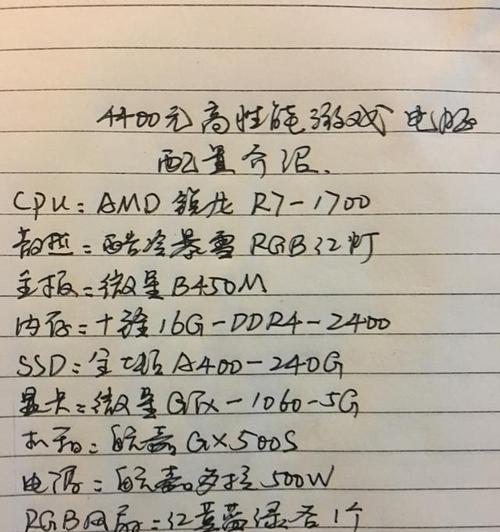 4400元高性能游戏电脑
配置介绍.
CPU: AMD 锐龙 R7-1700
散热: 酷冷暴雪 RGB红灯
主板: 微星B450M
内存: 十铨16G-DDR4-2400
SSD: 金士顿A400-240G
显卡: 微星GTX-1060-5G
机箱: 航嘉GX500S
电源: 航嘉多核500W
RGB风扇: 红黄蓝绿各1个